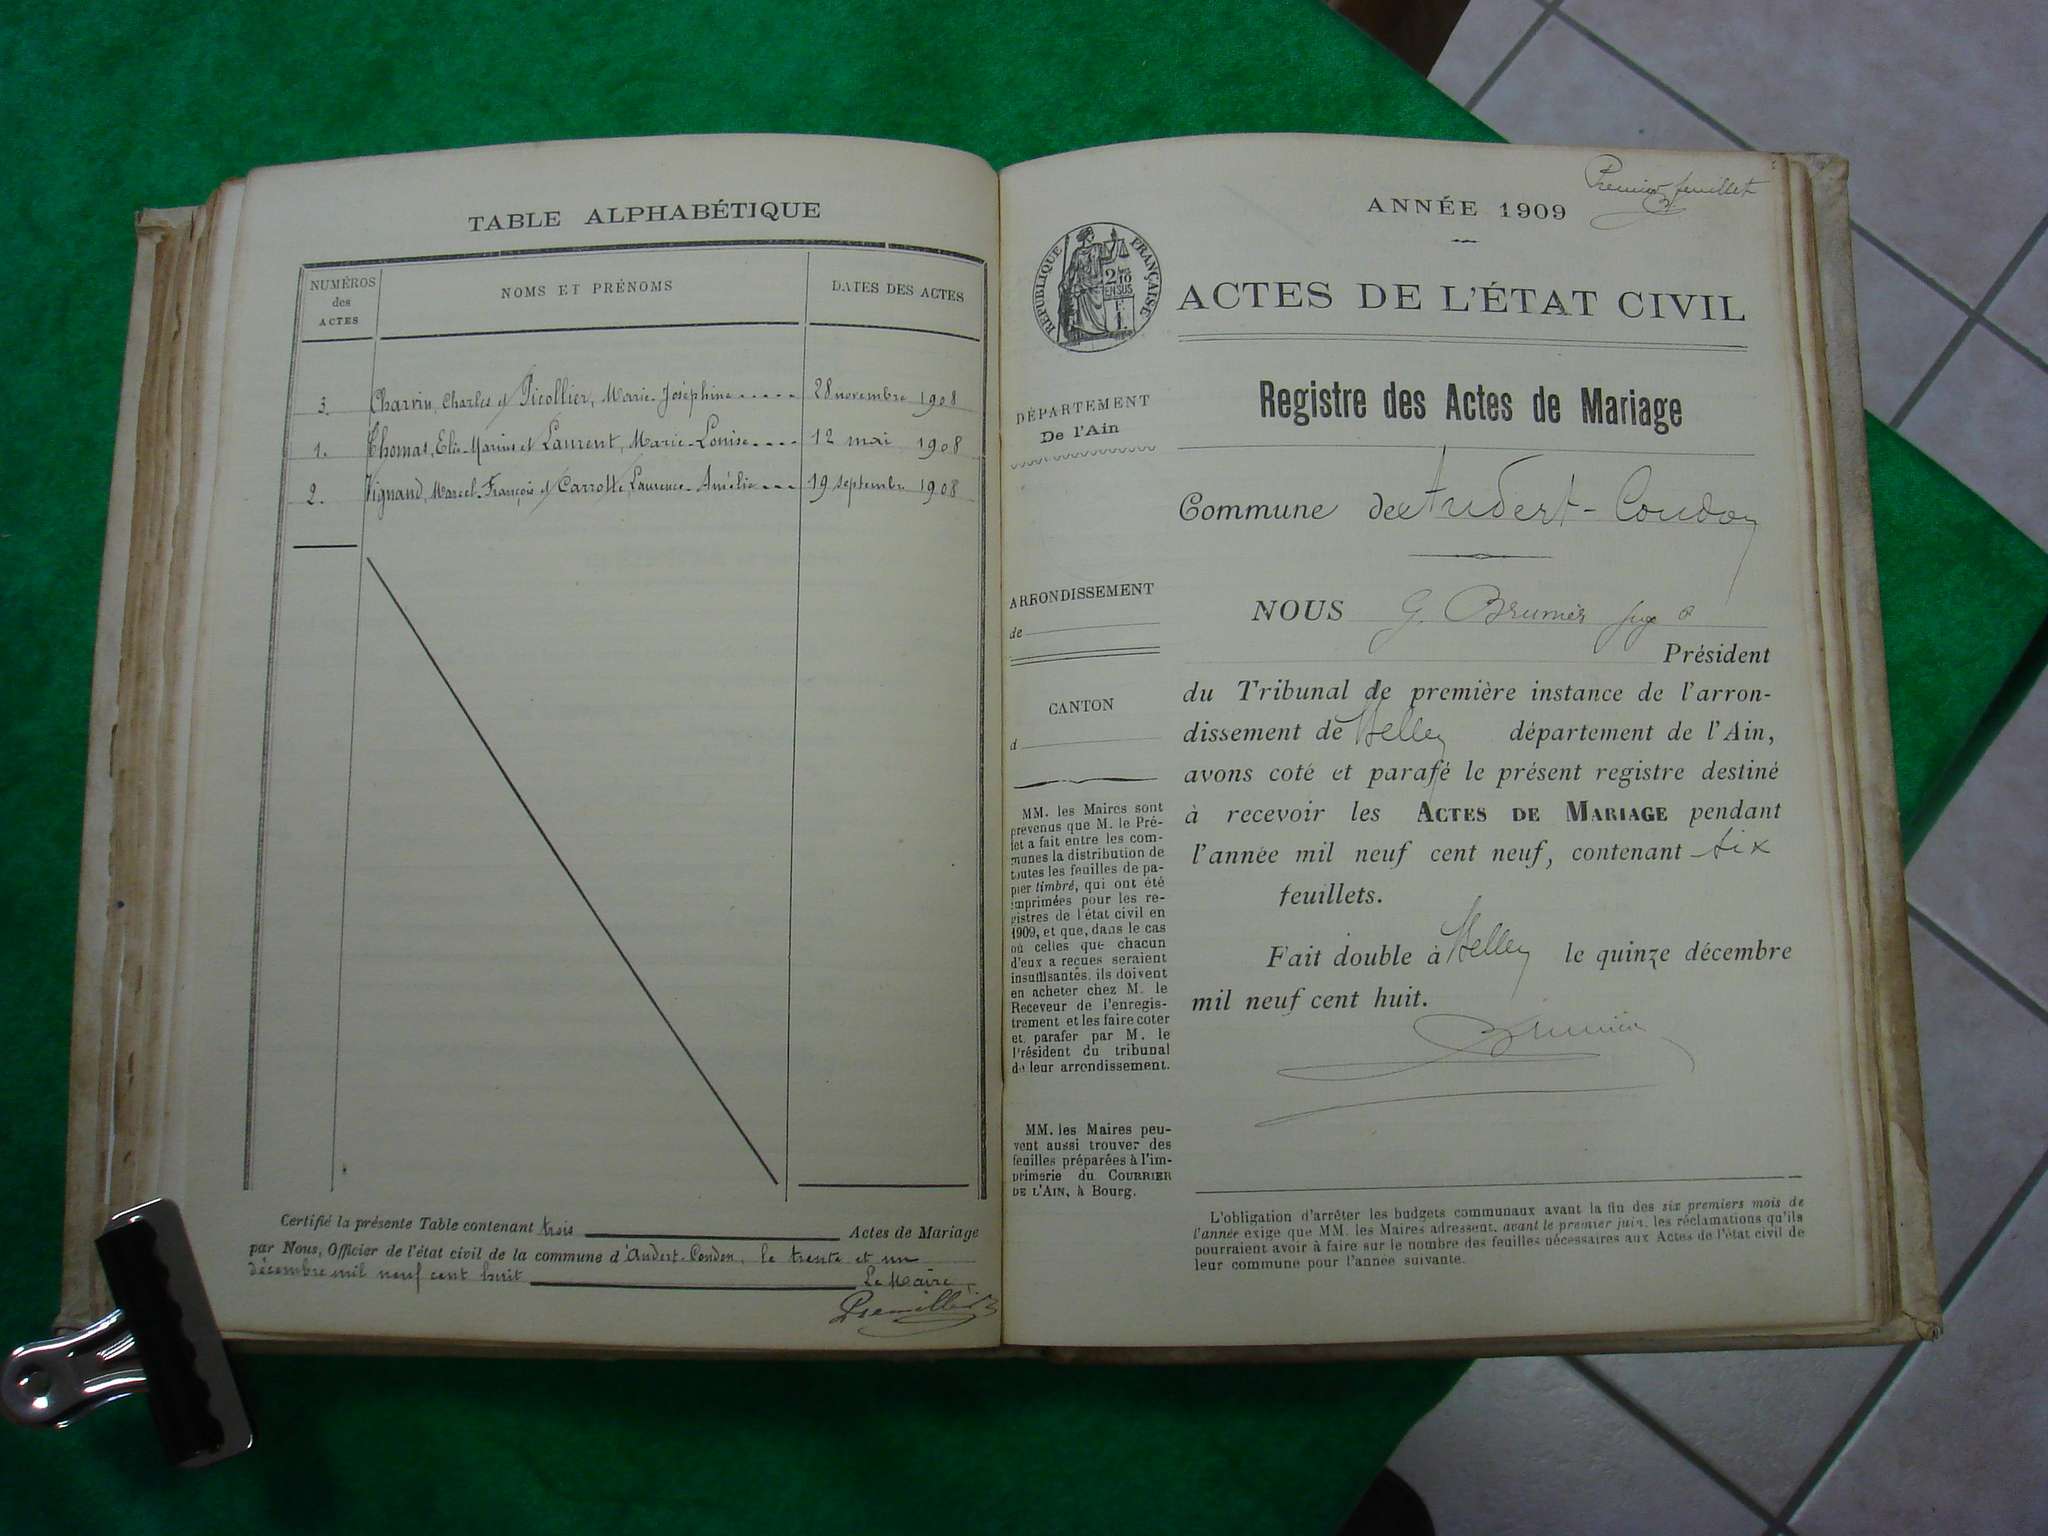 TABLE ALPHABÉTIQUE
NUMÉROS
des
ACTES
NOMS ET PRÉNOMS
DATES DES ACTES
3. Charvin, Charles et Picollier, Marie-Joséphine 28 novembre 1908
1. Thomas, Elie-Marius et Laurent, Marie-Louise 12 mai 1908
2. Vignand, Marcel-François et Carrotte, Laurence-Amélie 19 septembre 1908
Certifié la présente Table contenant trois Actes de Mariage
par Nous, Officier de l'état civil de la commune d'Andert-Condon, le trente et un
décembre mil neuf cent huit Le Maire
Premier feuillet
ANNÉE 1909
RÉPUBLIQUE FRANÇAISE
ACTES DE L'ÉTAT CIVIL
Registre des Actes de Mariage
DÉPARTEMENT
De l'Ain
Commune de Andert-Condon
ARRONDISSEMENT
de
CANTON
d
NOUS G. Brunier
Président
du Tribunal de première instance de l'arron-
dissement de Belley département de l'Ain,
avons coté et parafé le présent registre destiné
à recevoir les ACTES DE MARIAGE pendant
l'année mil neuf cent neuf, contenant six
feuillets.
Fait double à Belley le quinze décembre
mil neuf cent huit.
Brunier
MM. les Maires sont
prévenus que M. le Pré-
fet a fait entre les com-
munes la distribution de
toutes les feuilles de pa-
pier timbré, qui ont été
imprimées pour les re-
gistres de l'état civil en
1909, et que, dans le cas
où celles que chacun
d'eux a reçues seraient
insuffisantes, ils doivent
en acheter chez M. le
Receveur de l'enregis-
trement et les faire coter
et parafer par M. le
Président du tribunal
de leur arrondissement.
MM. les Maires peu-
vent aussi trouver des
feuilles préparées à l'im-
primerie du COURRIER
DE L'AIN, à Bourg.
L'obligation d'arrêter les budgets communaux avant la fin des six premiers mois de
l'année exige que MM. les Maires adressent, avant le premier juin, les réclamations qu'ils
pourraient avoir à faire sur le nombre des feuilles nécessaires aux Actes de l'état civil de
leur commune pour l'année suivante.